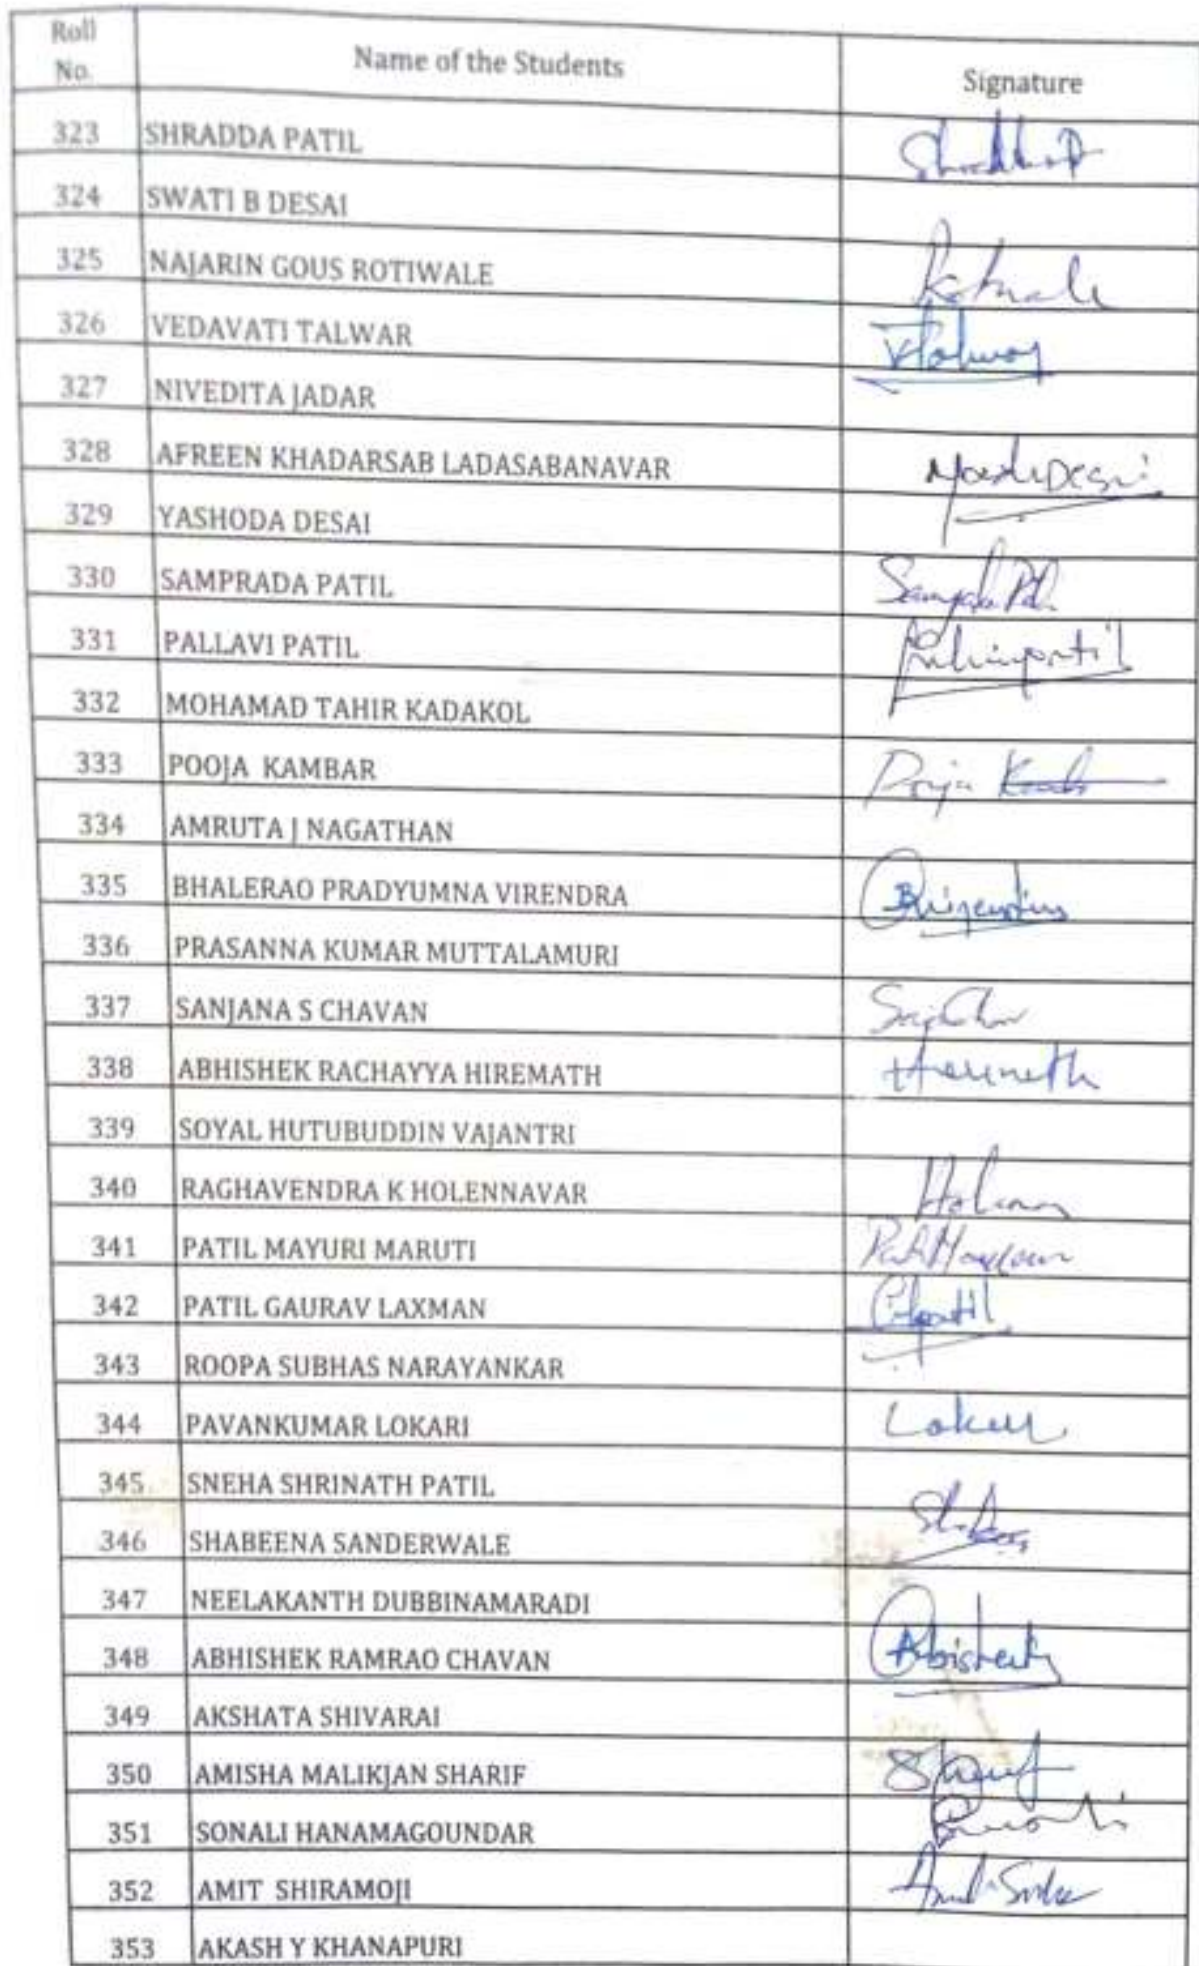 Roll No.
Name of the Students
Signature
323 SHRADDA PATIL
324 SWATI B DESAI
325 NAJARIN GOUS ROTIWALE
326 VEDAVATI TALWAR
327 NIVEDITA JADAR
328 AFREEN KHADARSAB LADASABANAVAR
329 YASHODA DESAI
330 SAMPRADA PATIL
331 PALLAVI PATIL
332 MOHAMAD TAHIR KADAKOL
333 POOJA KAMBAR
334 AMRUTA J NAGATHAN
335 BHALERAO PRADYUMNA VIRENDRA
336 PRASANNA KUMAR MUTTALAMURI
337 SANJANA S CHAVAN
338 ABHISHEK RACHAYYA HIREMATH
339 SOYAL HUTUBUDDIN VAJANTRI
340 RAGHAVENDRA K HOLENNAVAR
341 PATIL MAYURI MARUTI
342 PATIL GAURAV LAXMAN
343 ROOPA SUBHAS NARAYANKAR
344 PAVANKUMAR LOKARI
345 SNEHA SHRINATH PATIL
346 SHABEENA SANDERWALE
347 NEELAKANTH DUBBINAMARADI
348 ABHISHEK RAMRAO CHAVAN
349 AKSHATA SHIVARAI
350 AMISHA MALIKJAN SHARIF
351 SONALI HANAMAGOUNDAR
352 AMIT SHIRAMOJI
353 AKASH Y KHANAPURI